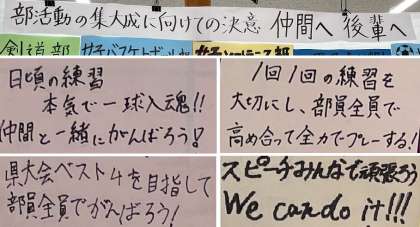 部活動の集大成に向けての決意 仲間へ 後輩へ
剣道部
女子バスケットボール部
日頃の練習
本気で一球入魂!!
仲間と一緒にがんばろう!
1回1回の練習を
大切にし、部員全員で
高め合って全力でプレーする!
県大会ベスト4を目指して
部員全員でがんばろう!
スピーチみんなで頑張ろう
We can do it!!!